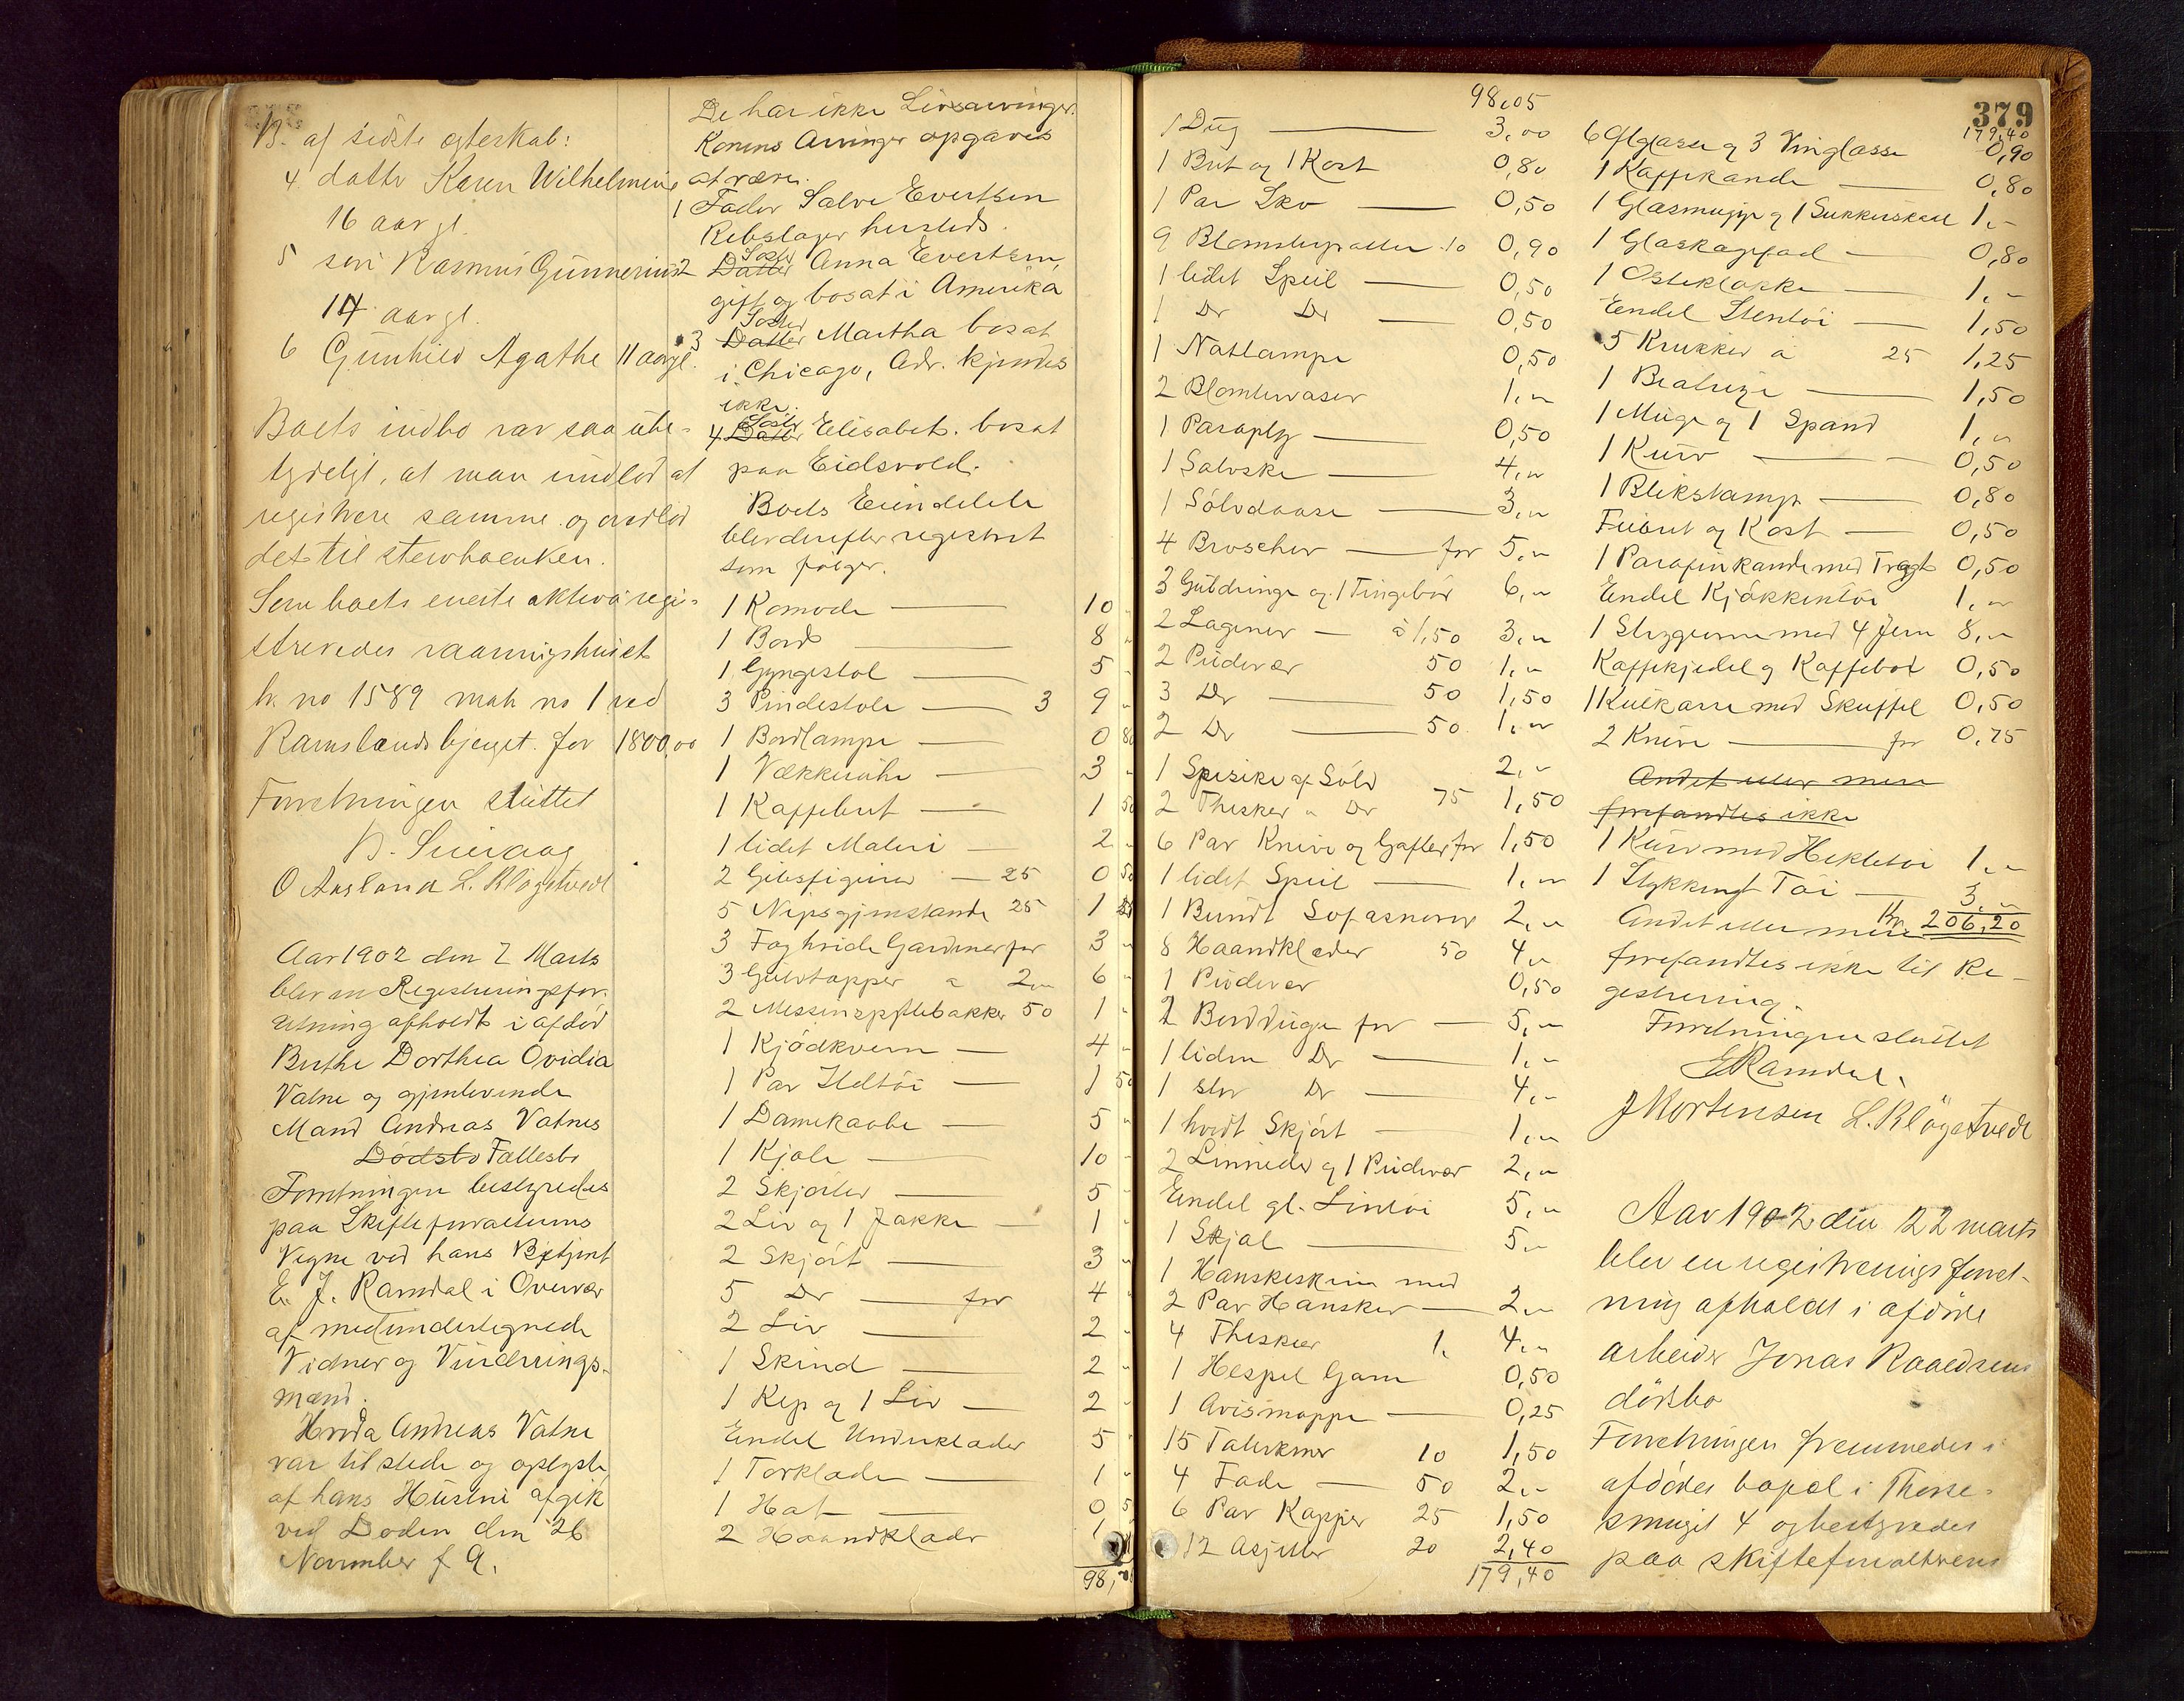 B. af sidste egteskab:
4. datter Karen Wilhelmine
16 aar gl.
5 søn Rasmus Gunnerius
14 aar gl.
6 Gunhild Agathe 11 aar gl.
Boets indbo var saa ube-
tydeligt, at man undlod at
registrere samme og
det til stervboenken.
Som boets eneste aktiva regi-
streredes vaaningshuset
h. no 1589 mat. no 1 ved
Ramslandsbjerget for 1800,00
Forretningen sluttet
O Aasland L. Kløgetvedt
Aar 1902 den 7 Marts
blev en Registreringsfor-
retning afholdt i afdød
Berthe Dorthea Ovidia
Vatne og gjenlevende
Mand Andreas Vatnes
Dødsbo Fællesbo
Forretningen bestyredes
paa Skifteforvalterens
Vegne ved hans Betjent
E. J. Ramdal i Overvær
af medundertegnede
Vidner og Vurderings-
mænd.
Hvorda Andreas Vatne
var tilstede og oplyste
at hans Hustru afgik
ved Døden den 26
November f. A.
De har ikke Livsarvinger.
Konens Arvinger opgaves
at være:
1 Fader Salve Evertsen
Rebslager hersteds.
2 Datter Søster Anna Evertsen,
gift og bosat i Amerika
3 Datter Søster Martha bosat
i Chicago, Adr. kjendes
ikke.
4 Datter Søster Elisabet. bosat
paa Eidsvold.
Boets Eiendele
blev derefter registrert
som følger.
1 Komode — 10 "
1 Bord — 8 "
1 Gyngestol — 5 "
3 Pindestole — 3 9 "
1 Bordlampe — 0 80
1 Vækkeruhr — 3 "
1 Kaffebret — 1 50
1 lidet Maleri — 2 "
2 Gibsfigurer — 25 0 50
5 Nipsgjenstande 25 1 25
3 Fag hvide Gardiner for 3 "
3 Gulvtæpper a 2,„ 6 "
2 Messingpflebakker 50 1 "
1 Kjødkvern — 4 "
1 Par Ildtøi — 1 50
1 Damekaabe — 5 "
1 Kjole — 10 "
2 Skjorter — 5 "
2 Liv og 1 Jakke — 1 "
2 Skjørt — 3 "
5 Do — for 4 "
2 Liv — 2 "
1 Skind — 2 "
1 Kep og 1 Liv — 2 "
Endel Underklæder 5 "
1 Tørklæde — 1 "
1 Hat — 0 5
2 Haandklæder 1
98,
379
98,05
1 Dug — 3,00
1 Bret og 1 Kost 0,80
1 Par Sko — 0,50
9 Blomsterpotter 10 0,90
1 lidet Speil — 0,50
1 Do Do — 0,50
1 Natlampe 0,50
2 Blomstervaser 1,„
1 Paraply — 0,50
1 Salvske — 4,„
1 Sølvdaase — 3,„
4 Broscher — for 5,„
3 Guldringe og 1 Fingebør 6,„
2 Lagener — à 1,50 3,„
2 Pudevær 50 1,„
3 Do — 50 1,50
2 Do — 50 1,„
1 Spiseske af Sølv 2,„
2 Theskeer " Do 75 1,50
6 Par Knive og Gafler for 1,50
1 lidet Speil — 1,„
1 Bundt Sofasnorer 2,„
8 Haandklæder 50 4,„
1 Pudevær 0,50
2 Bordduge for — 5,„
1 liden Do — 1,„
1 stor Do — 4,„
1 hvidt Skjørt — 1,„
2 Linneder og 1 Pudevær 2,„
Endel gl. Lintøi 5,„
1 Sjal — 5,„
1 Hanskeskrin med
2 Par Hansker — 2,„
4 Theskeer 1, 4,„
1 Hespel Garn 0,50
1 Avismappe — 0,25
15 Talerkner 10 1,50
4 Fade — 50 2,„
6 Par Kopper 25 1,50
12 Asjetter 20 2,40
179,40
179,40
6 Ølglasse og 3 Vinglasse 0,90
1 Kaffekande — 0,80
1 Glasmugge og 1 Sukkerskaal 1,„
1 Glaskagefad — 0,80
1 Osteklokke — 1,„
Endel Stentøi — 1,50
5 Krukker a 25 1,25
1 — 1,50
1 Mugge og 1 Spand 1,„
1 Kurv — 0,50
1 Blikstamp — 0,80
Feiebret og Kost — 0,50
1 Parafinkande med Tragt 0,50
Endel Kjøkkentøi 1,„
1 Strygeovn med 4 Jern 8,„
Kaffekjedel og Kaffebox 0,50
1 Kulkasse med Skuffel 0,50
2 Knive — for 0,75
Andet eller mere
forefandtes ikke
1 Kurv med Hekletøi 1,„
1 Stykkengt Tøi — 3,„
Kr. 206,20
Andet eller mere
forefandtes ikke til Re-
gistrering.
Forretningen sluttet
E Ramdal.
J Mortensen L. Kløgetvedt
Aar 1902 den 22 marts
blev en registrerings forret-
ning afholdt i afdøde
arbeider Jonas Raaedsens
dødsbo
Forretningen fremmedes i
afdødes bopæl i Thorse-
smuget 4 og bestyredes
paa skifteforvalterens